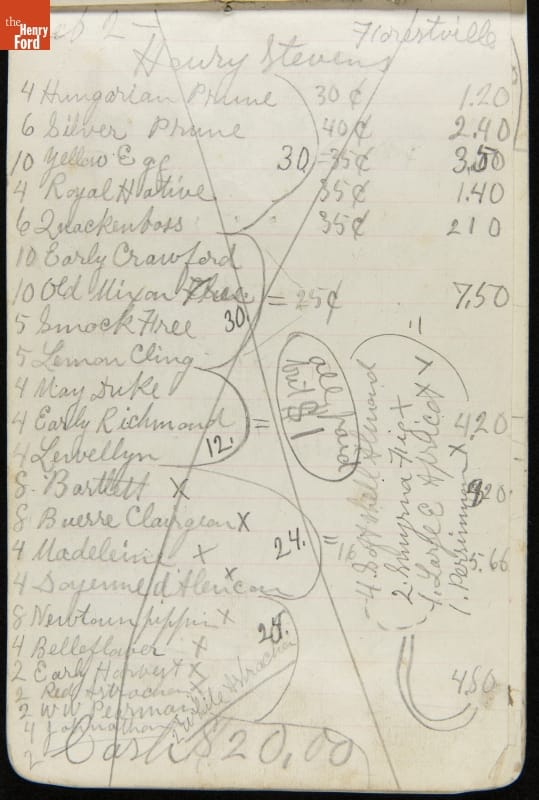 the
Henry
Ford
Feb 2 - Florestville
Henry Stevens
4 Hungarian Prune 30¢ 1.20
6 Silver Prune 40¢ 2.40
10 Yellow Egg 30 - 35¢ 3.50
4 Royal Hative 35¢ 1.40
6 Quackenboss 35¢ 2 1 0
10 Early Crawford
10 Old Mixon Free = 25¢ 7.50
5 Smock Free 30
5 Lemon Cling
4 May Duke
4 Early Richmond = 4 20
4 Lewellyn 12.
8 Bartlett X
8 Buerre Clairgeau X
4 Madeleine X 24. = 16 5.66
4 Doyenne d'Alencon X
8 Newtown pippin X
4 Belleflower X 24.
2 Early Harvest X
2 Red Astrachan X 4.50
2 WW Pearmain
4 Johnathan
2 White Astrachan
Cash $20,00
all paid
but $1
4 Soft Shell Almond
2. Smyrna Fig X
1. Large E Apricot X X
1. Persimmon X